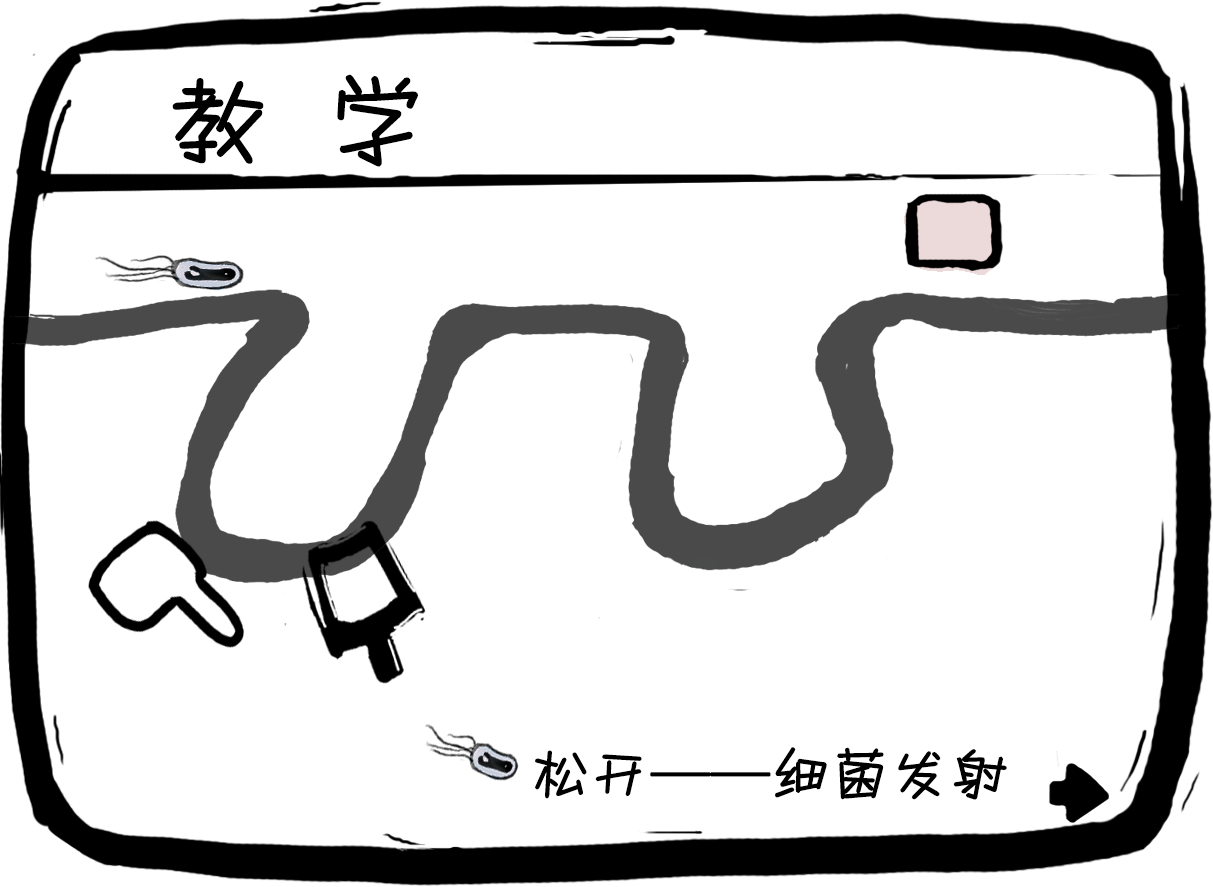 教 学
松开——细菌发射